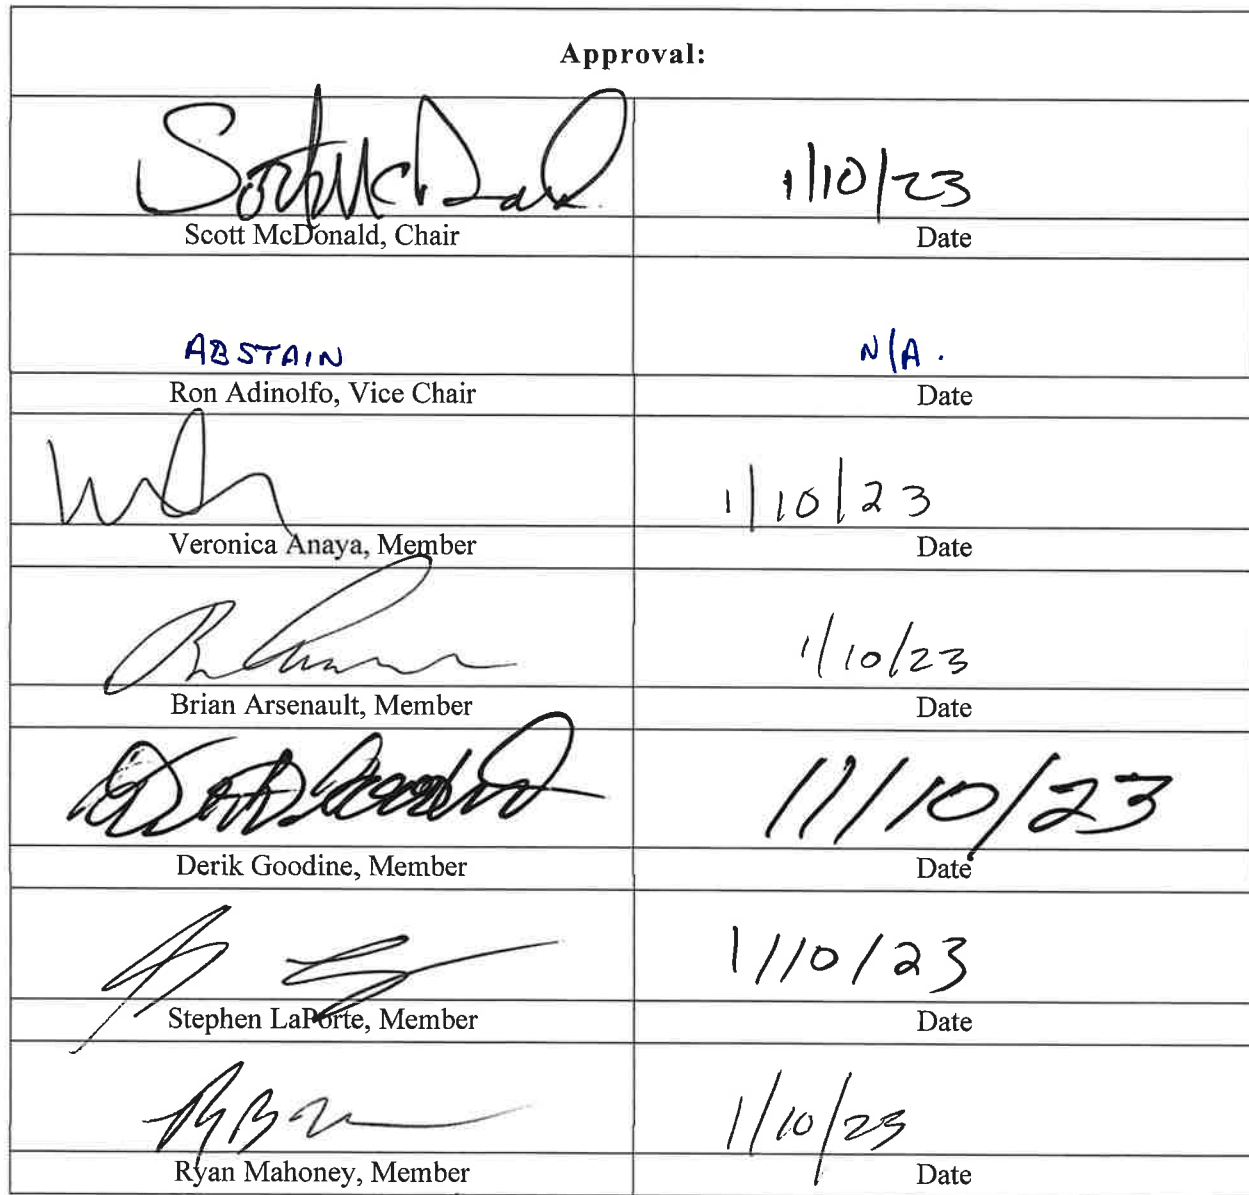 Approval:
Scott McDonald 1/10/23
Scott McDonald, Chair Date
ABSTAIN N/A.
Ron Adinolfo, Vice Chair Date
1/10/23
Veronica Anaya, Member Date
1/10/23
Brian Arsenault, Member Date
11/10/23
Derik Goodine, Member Date
1/10/23
Stephen LaPorte, Member Date
1/10/23
Ryan Mahoney, Member Date